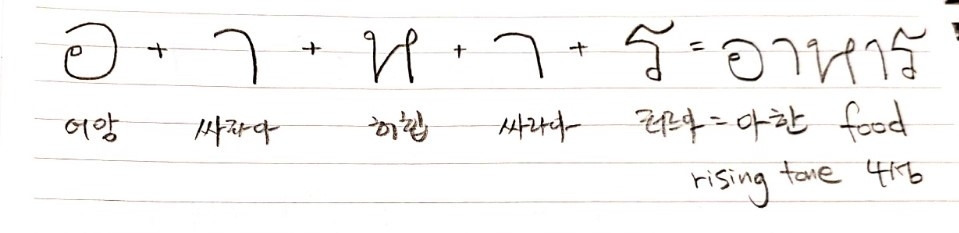 อ + า + ห + า + ร = อาหาร
어앙 싸라아 허힙 싸라아 = 아한 food
rising tone